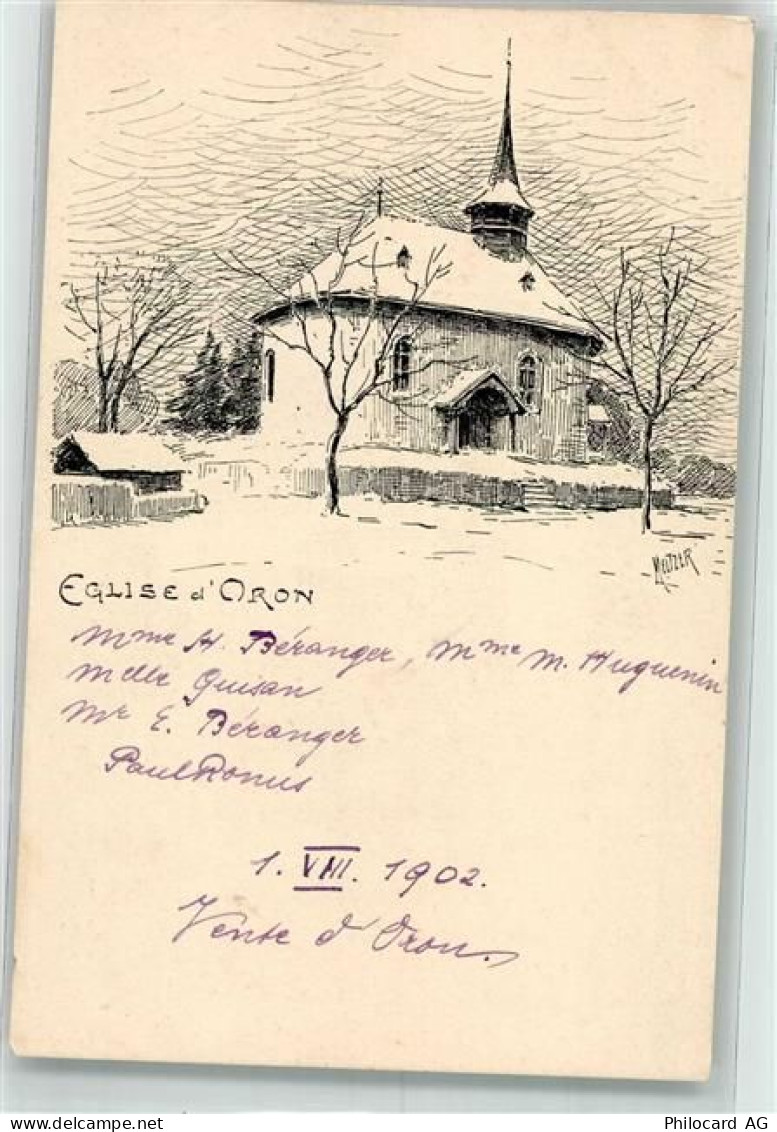 MELZER
EGLISE d'ORON
Mme H. Béranger, Mme M. Huguenin
Melle Guisan
Mr E. Béranger
Paul Ronus
1. VIII. 1902.
Vente d'Oron.
www.delcampe.net
Philocard AG